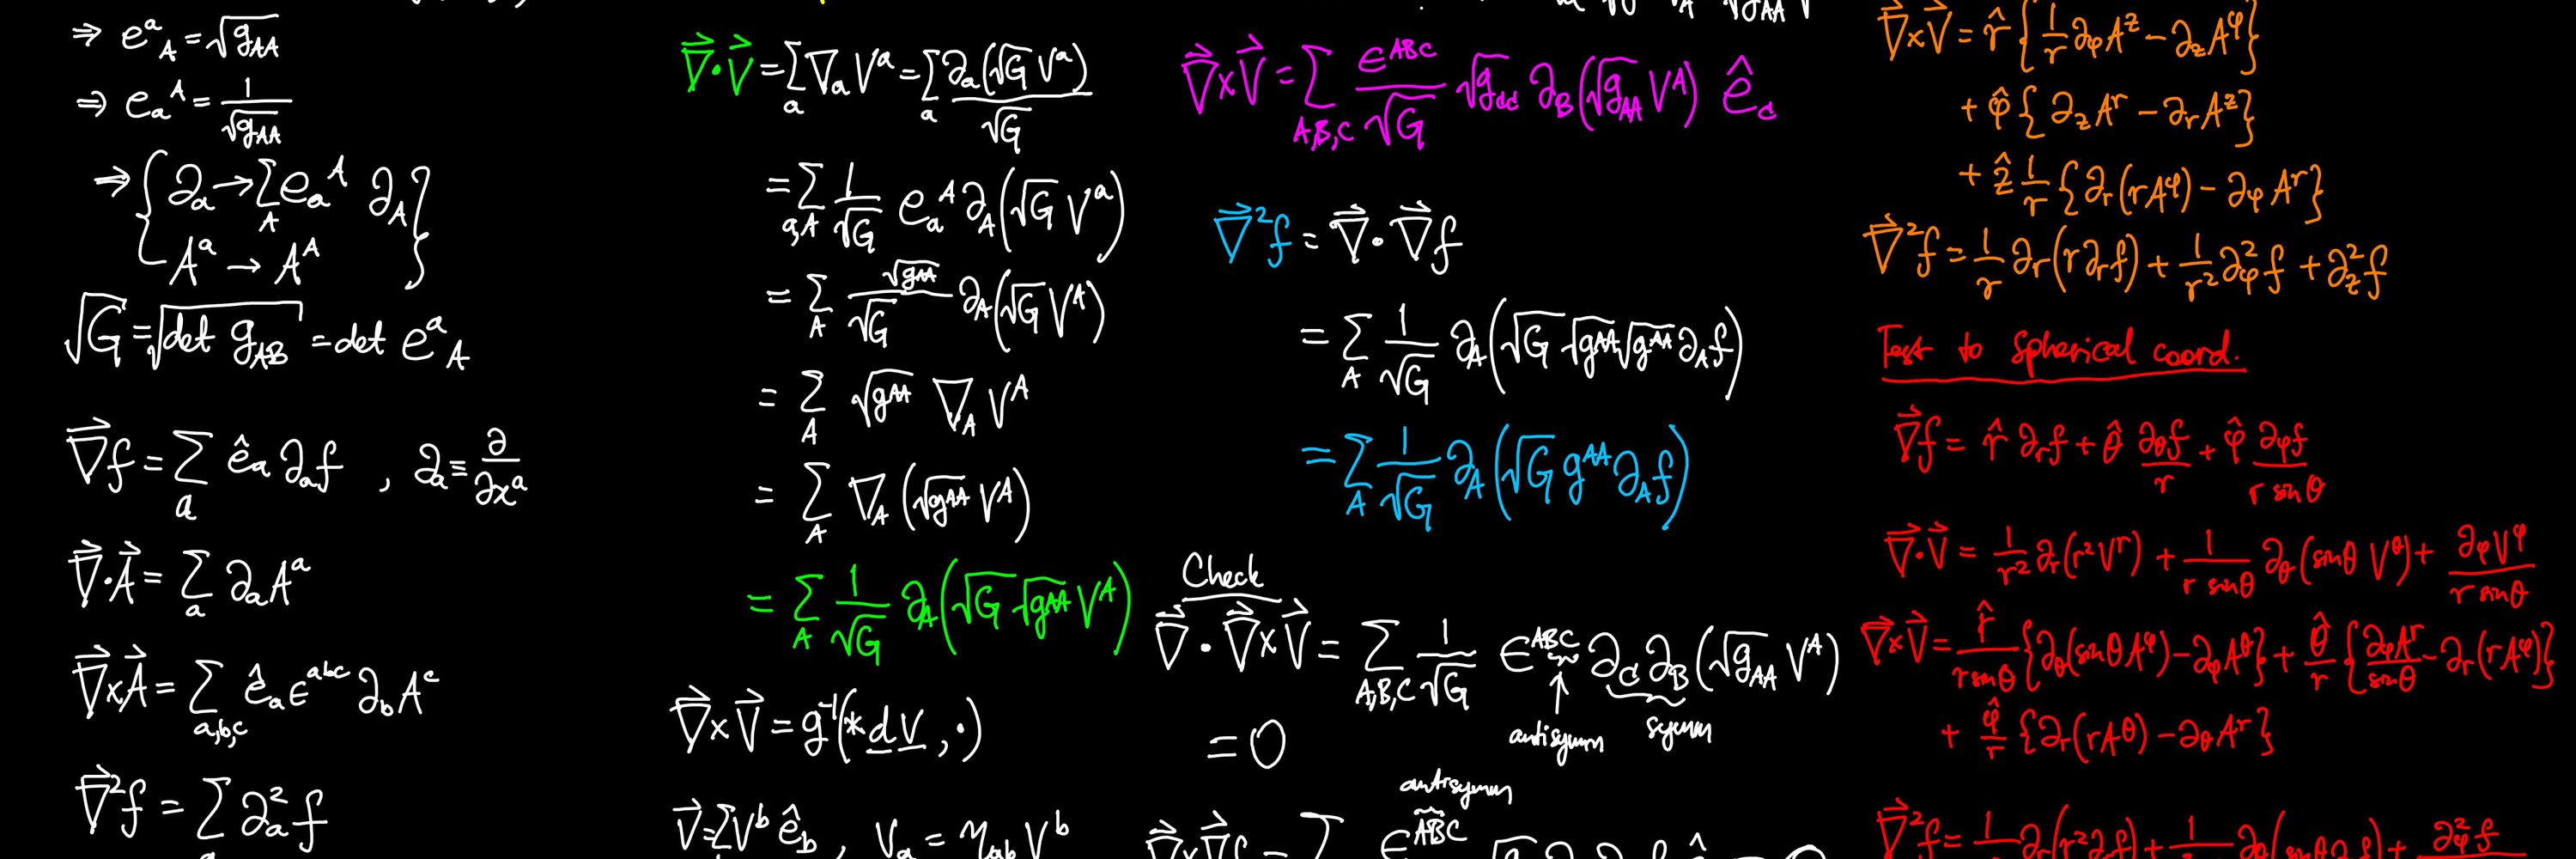 ⇒ e^a_A = √g_AA
⇒ e_a^A = 1/√g_AA
⇒ { ∂_a → Σ_A e_a^A ∂_A }
{ A^a → A^A }
√G = √det g_AB = det e^a_A
∇⃗f = Σ_a ê_a ∂_a f , ∂_a ≡ ∂/∂x^a
∇⃗·A⃗ = Σ_a ∂_a A^a
∇⃗×A⃗ = Σ_{a,b,c} ê_a ε^{abc} ∂_b A^c
∇⃗²f = Σ_a ∂_a² f
∇⃗·V⃗ = Σ_a ∇_a V^a = Σ_a ∂_a(√G V^a)/√G
= Σ_{a,A} 1/√G e_a^A ∂_A(√G V^a)
= Σ_A √g^AA/√G ∂_A(√G V^A)
= Σ_A √g^AA ∇_A V^A
= Σ_A ∇_A(√g^AA V^A)
= Σ_A 1/√G ∂_A(√G √g^AA V^A)
∇⃗×V⃗ = g^{-1}(*dV, ·)
V⃗ = ΣV^b ê_b , V_a = η_ab V^b
∇⃗×V⃗ = Σ_{A,B,C} ε^{ABC}/√G √g_cc ∂_B(√g_AA V^A) ê_c
∇⃗²f = ∇⃗·∇⃗f
= Σ_A 1/√G ∂_A(√G √g^AA √g^AA ∂_A f)
= Σ_A 1/√G ∂_A(√G g^AA ∂_A f)
Check
∇⃗·∇⃗×V⃗ = Σ_{A,B,C} 1/√G ε^{ABC} ∂_C ∂_B(√g_AA V^A)
antisymm symm
= 0
antisymm
∇⃗×V⃗ = r̂ {1/r ∂_φ A^z − ∂_z A^φ}
+ φ̂ {∂_z A^r − ∂_r A^z}
+ ẑ 1/r {∂_r(rA^φ) − ∂_φ A^r}
∇⃗²f = 1/r ∂_r(r∂_r f) + 1/r² ∂_φ² f + ∂_z² f
Test to Spherical coord.
∇⃗f = r̂ ∂_r f + θ̂ ∂_θ f/r + φ̂ ∂_φ f/(r sinθ)
∇⃗·V⃗ = 1/r² ∂_r(r²V^r) + 1/(r sinθ) ∂_θ(sinθ V^θ) + ∂_φ V^φ/(r sinθ)
∇⃗×V⃗ = r̂/(r sinθ) {∂_θ(sinθ A^φ) − ∂_φ A^θ} + θ̂/r {∂_φ A^r/sinθ − ∂_r(rA^φ)}
+ φ̂/r {∂_r(rA^θ) − ∂_θ A^r}